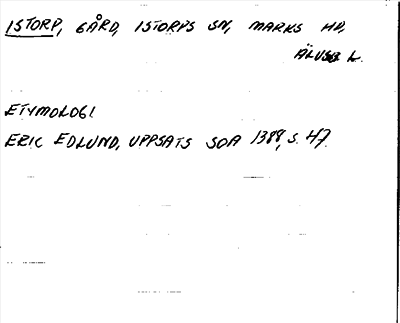 ISTORP, GÅRD, ISTORPS SN, MARKS HD,
ÄLVSB L.
ETYMOLOGI
ERIC EDLUND, UPPSATS SOA 1388, S. 47.